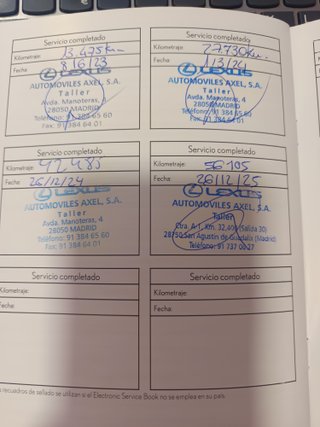 Servicio completado
Kilometraje: 23.475km
Fecha: 8/6/23
LEXUS
AUTOMOVILES AXEL, S.A.
Taller
Avda. Manoteras, 4
28050 MADRID
Teléfono: 91 384 65 60
Fax: 91 384 64 01
Servicio completado
Kilometraje: 27.730km.
Fecha: 1/3/24
LEXUS
AUTOMOVILES AXEL, S.A.
Taller
Avda. Manoteras, 4
28050 MADRID
Teléfono: 91 384 65 60
Fax: 91 384 64 01
Servicio completado
Kilometraje: 42.485
Fecha: 26/12/24
LEXUS
AUTOMOVILES AXEL, S.A.
Taller
Avda. Manoteras, 4
28050 MADRID
Teléfono: 91 384 65 60
Fax: 91 384 64 01
Servicio completado
Kilometraje: 56.105
Fecha: 26/12/25
LEXUS
AUTOMOVILES AXEL, S.A.
Taller
Ctra. A-1, Km. 32,400 (Salida 30)
28750 San Agustín de Guadalix (Madrid)
Teléfono: 91 737 00 27
Servicio completado
Kilometraje:
Fecha:
Servicio completado
Kilometraje:
Fecha:
recuadros de sellado se utilizan si el Electronic Service Book no se emplea en su país.